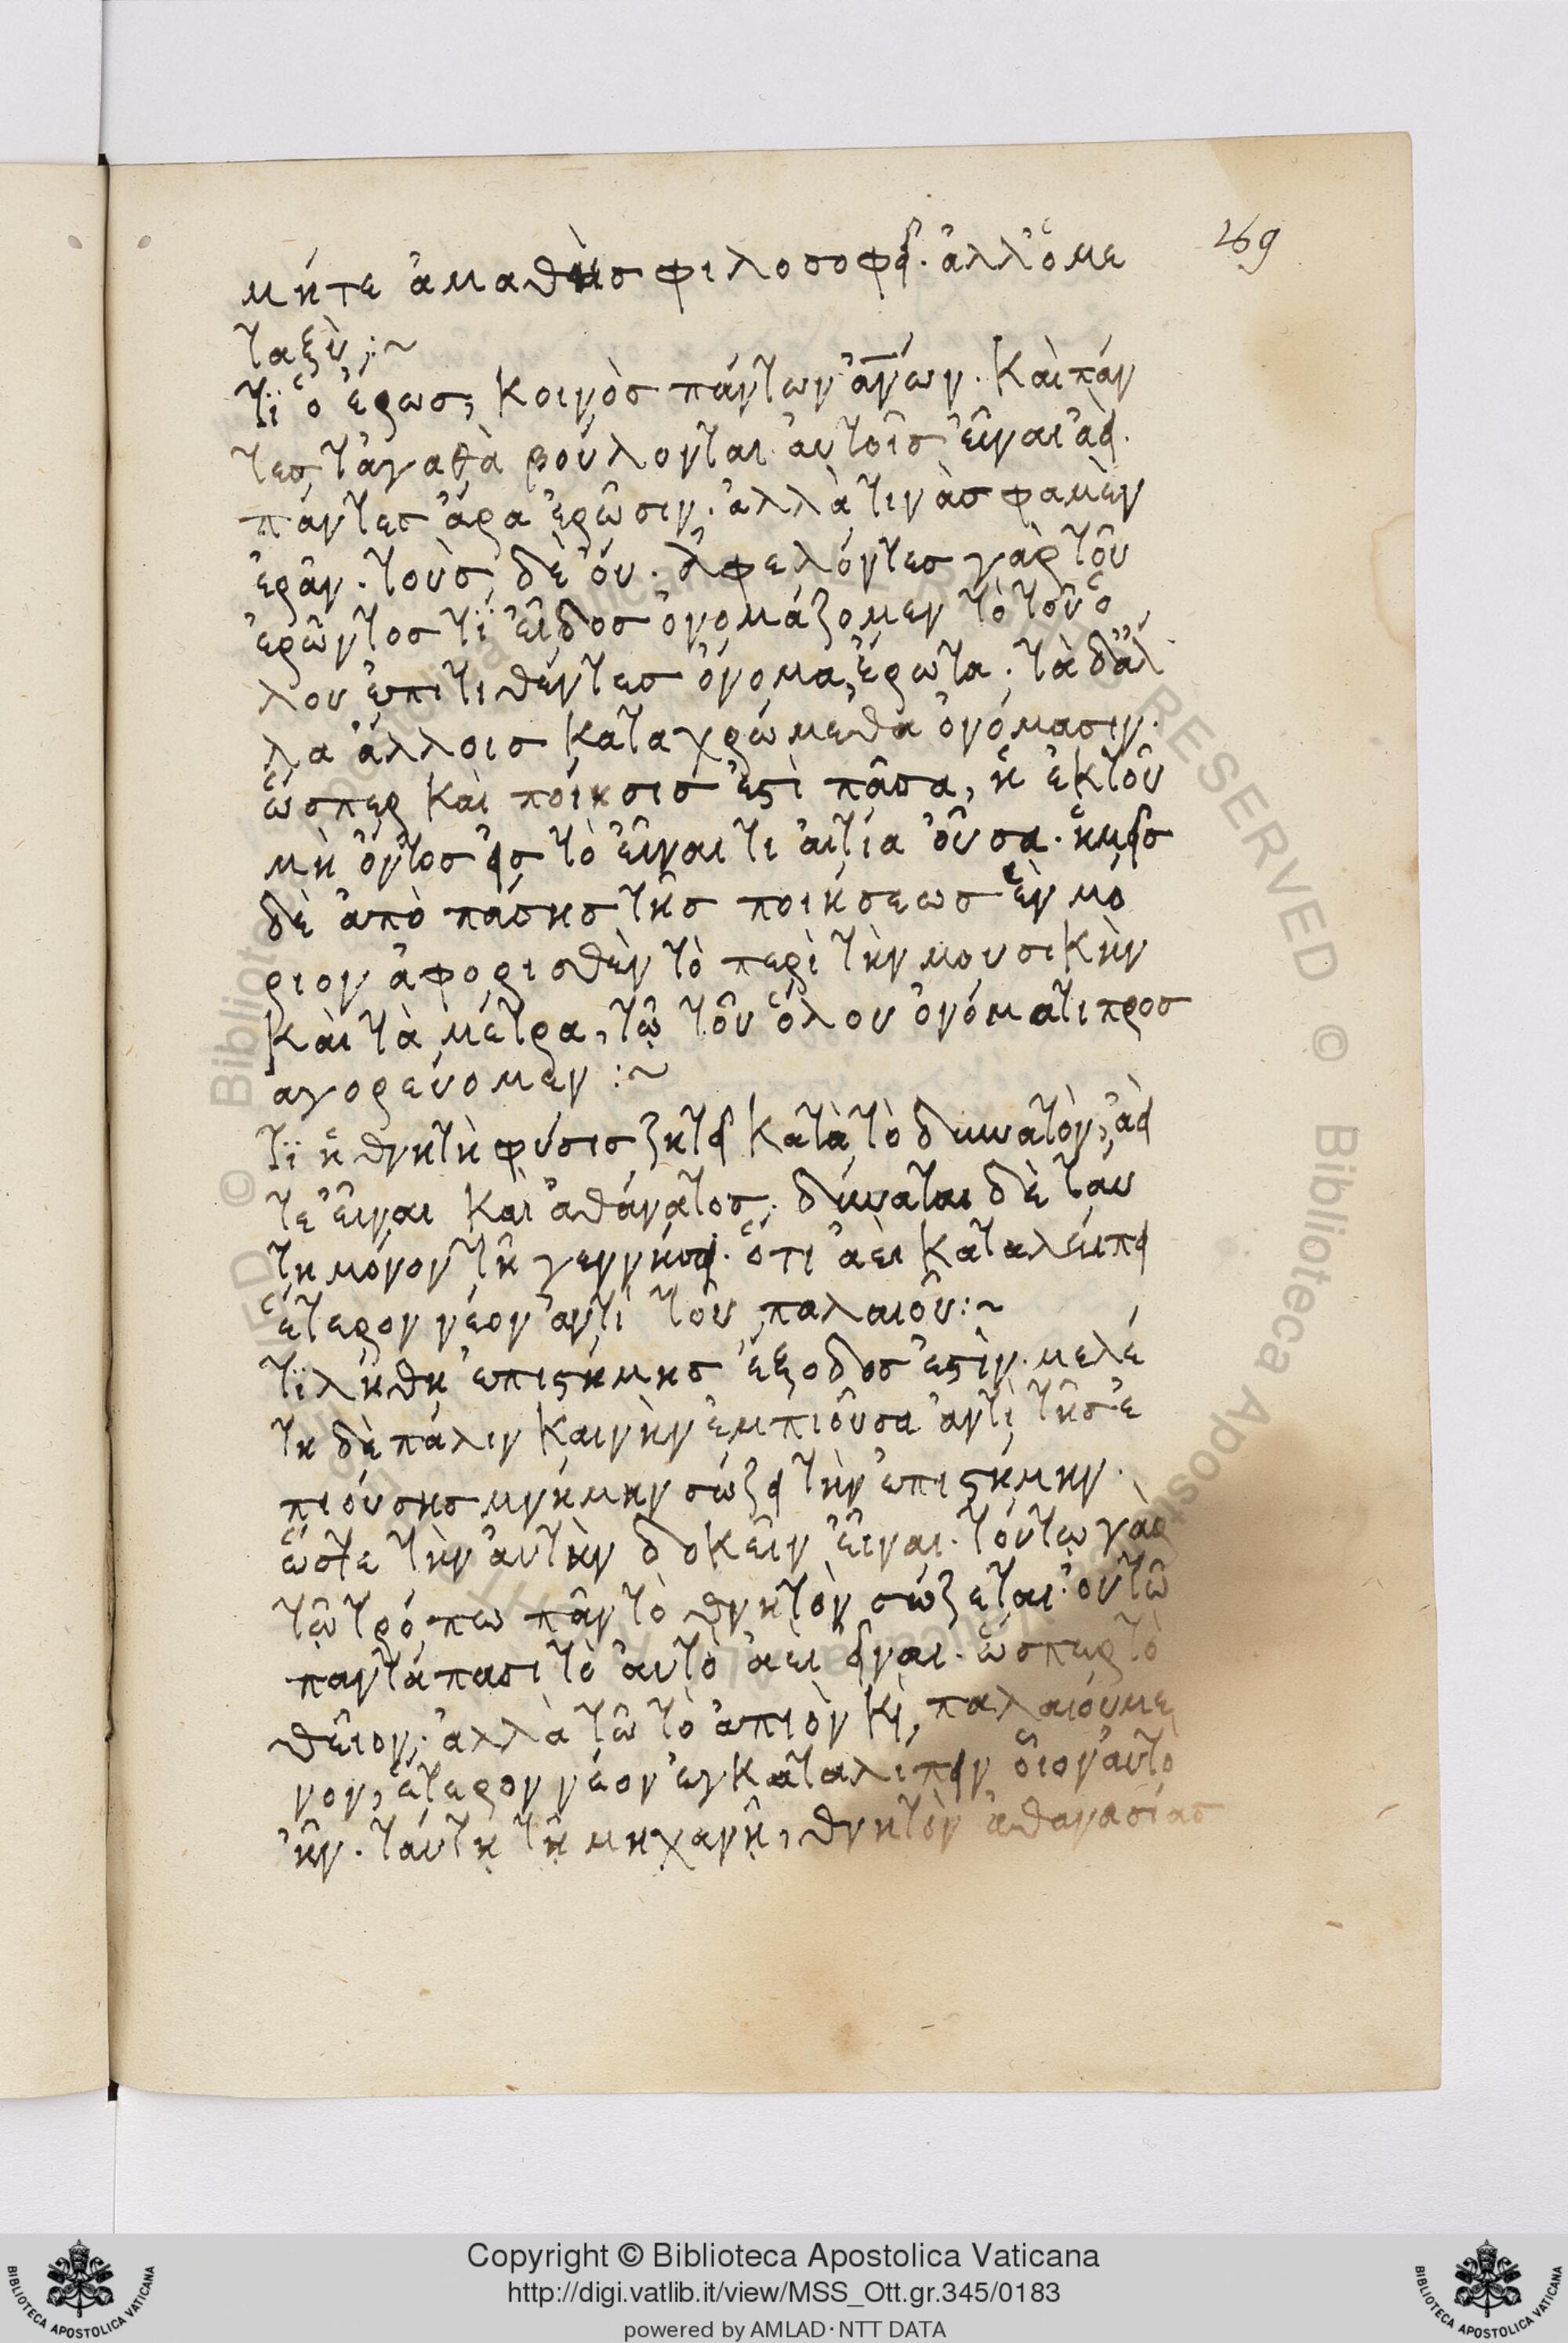 269
μήτε ἀμαθὴς φιλοσοφεῖ. ἀλλ' ὁ με
ταξύ :~
Τί ὁ ἔρως, κοινὸς πάντων ἀνων. Καὶ πάν
τες τἀγαθὰ βούλονται αὐτοῖς εἶναι ἀεί.
πάντες ἄρα ἐρῶσιν. ἀλλὰ τινὰς φαμὲν
ἐρᾶν. τοὺς δὲ οὔ. ἀφελόντες γὰρ τοῦ
ἐρῶντος τί εἶδος ὀνομάζομεν τὸ τοῦ ὅ
λου ἐπιτιθέντες ὄνομα, ἔρωτα. τὰ δ' ἄλ
λα ἄλλοις καταχρώμεθα ὀνόμασιν.
ὥσπερ καὶ ποίησις ἐστὶ πᾶσα, ἡ ἐκ τοῦ
μὴ ὄντος εἰς τὸ εἶναι τι αἰτία οὖσα. ἡμεῖς
δὲ ἀπὸ πάσης τῆς ποιήσεως ἓν μό
ριον ἀφορισθὲν τὸ περὶ τὴν μουσικὴν
καὶ τὰ μέτρα, τῷ τοῦ ὅλου ὀνόματι προσ
αγορεύομεν :~
Τί ἡ θνητὴ φύσις ζητεῖ κατὰ τὸ δυνατὸν, ἀεί
τε εἶναι καὶ ἀθάνατος. δύναται δὲ ταύ
τη μόνον τῇ γεννήσει. ὅτι ἀεὶ καταλείπει
ἕτερον νέον ἀντὶ τοῦ παλαιοῦ :~
Τί λήθη ἐπιστήμης ἔξοδος ἐστίν. μελέ
τη δὲ πάλιν καινὴν ἐμπιοῦσα ἀντὶ τῆς ἐ
πιούσης μνήμην σώζει τὴν ἐπιστήμην.
ὥστε τὴν αὐτὴν δοκεῖν εἶναι. τούτῳ γὰρ
τῷ τρόπω πᾶν τὸ θνητὸν σώζεται. οὐ τῶ
παντάπασι τὸ αὐτὸ ἀεὶ εἶναι. ὥσπερ τὸ
θεῖον. ἀλλὰ τῶ τὸ ἀπιὸν κὶ παλαιούμε
νον, ἕτερον νέον ἐγκαταλίπειν οἷον αὐτὸ
ἦν. ταύτῃ τῇ μηχανῇ, θνητὸν ἀθανασίας
Copyright © Biblioteca Apostolica Vaticana
http://digi.vatlib.it/view/MSS_Ott.gr.345/0183
powered by AMLAD·NTT DATA